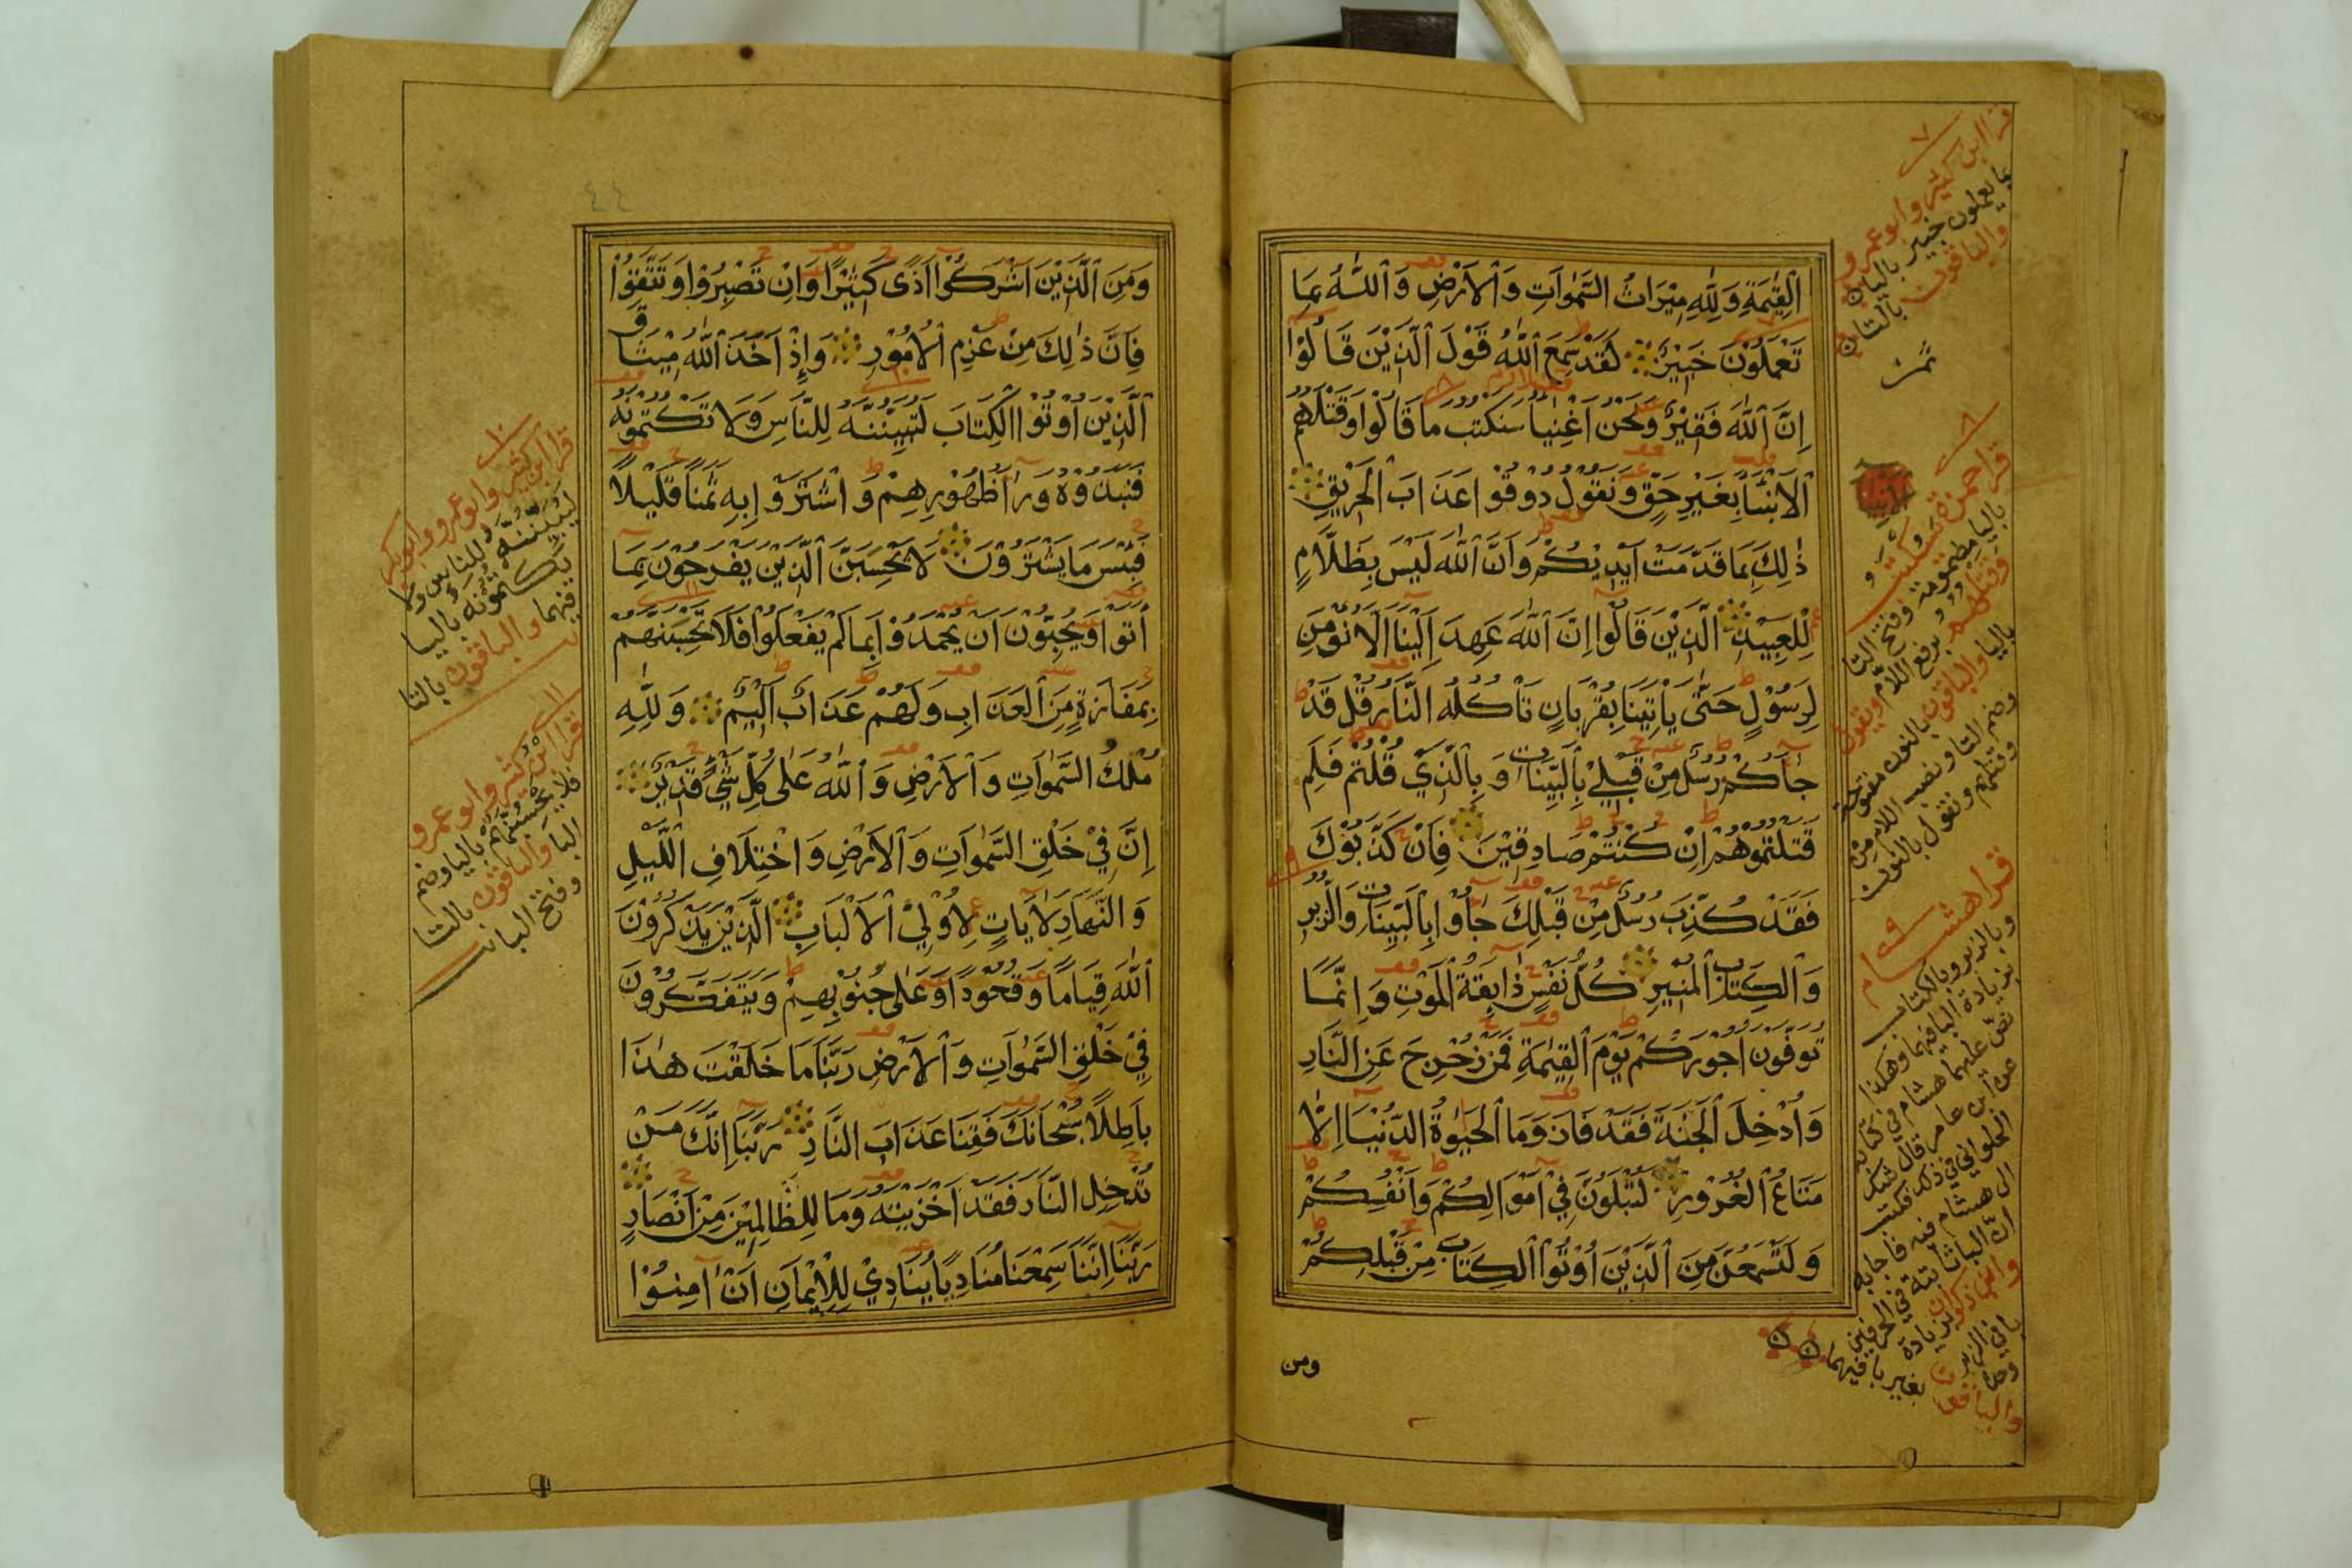 الْقِيٰمَةِ وَلِلّٰهِ مِيْرَاثُ السَّمٰوَاتِ وَالْاَرْضِ وَاللّٰهُ بِمَا
تَعْمَلُوْنَ خَبِيْرٌ لَقَدْ سَمِعَ اللّٰهُ قَوْلَ الَّذِيْنَ قَالُوْا
اِنَّ اللّٰهَ فَقِيْرٌ وَنَحْنُ اَغْنِيَاُ سَنَكْتُبُ مَا قَالُوْا وَقَتْلَهُمُ
الْاَنْبِيَاَ بِغَيْرِ حَقٍّ وَنَقُوْلُ ذُوْقُوْا عَذَابَ الْحَرِيْقِ
ذٰلِكَ بِمَا قَدَّمَتْ اَيْدِيْكُمْ وَاَنَّ اللّٰهَ لَيْسَ بِظَلَّامٍ
لِلْعَبِيْدِ الَّذِيْنَ قَالُوْا اِنَّ اللّٰهَ عَهِدَ اِلَيْنَا اَلَّا نُؤْمِنَ
لِرَسُوْلٍ حَتّٰى يَاْتِيَنَا بِقُرْبَانٍ تَاْكُلُهُ النَّارُ قُلْ قَدْ
جَآَكُمْ رُسُلٌ مِنْ قَبْلِيْ بِالْبَيِّنَاتِ وَبِالَّذِيْ قُلْتُمْ فَلِمَ
قَتَلْتُمُوْهُمْ اِنْ كُنْتُمْ صَادِقِيْنَ فَاِنْ كَذَّبُوْكَ
فَقَدْ كُذِّبَ رُسُلٌ مِنْ قَبْلِكَ جَآُو بِالْبَيِّنَاتِ وَالزُّبُرِ
وَالْكِتَابِ الْمُنِيْرِ كُلُّ نَفْسٍ ذَايِقَةُ الْمَوْتِ وَاِنَّمَا
تُوَفَّوْنَ اُجُوْرَكُمْ يَوْمَ الْقِيٰمَةِ فَمَنْ زُحْزِحَ عَنِ النَّارِ
وَاُدْخِلَ الْجَنَّةَ فَقَدْ فَازَ وَمَا الْحَيٰوةُ الدُّنْيَا اِلَّا
مَتَاعُ الْغُرُوْرِ لَتُبْلَوُنَّ فِيْ اَمْوَالِكُمْ وَاَنْفُسِكُمْ
وَلَتَسْمَعُنَّ مِنَ الَّذِيْنَ اُوْتُوْا الْكِتَابَ مِنْ قَبْلِكُمْ
ومن
٧
قرا ابن كثير وابو عمرو
بما يعملون خبير بالياء
والباقون بالتاء
٨
قرا حمزة سيكتب
بالياء مضمومة وفتح التا
وقتلهم برفع اللام ويقول
باليا والباقون بالنون مفتوحة
وضم التا ونصب اللام من
وقتلهم ونقول بالنون
٩
قرا هشام
وبالزبر وبالكتاب
بزيادة البا فيهما وهكذا
نص عليهما هشام في كتابه
عن ابن عامر قال شك
الحلواني في ذلك فكتب
الى هشام فيه فاجابه
ان البا ثابتة في الحرفين
وابن ذكوان بزيادة
با في الزبر وحده
والباقون بغير با فيهما
٤٤
وَمِنَ الَّذِيْنَ اَشْرَكُوْا اَذًى كَثِيْرًا وَاِنْ تَصْبِرُوْا وَتَتَّقُوْا
فَاِنَّ ذٰلِكَ مِنْ عَزْمِ الْاُمُوْرِ وَاِذْ اَخَذَ اللّٰهُ مِيْثَاقَ
الَّذِيْنَ اُوْتُوْا الْكِتَابَ لَتُبَيِّنُنَّهُ لِلنَّاسِ وَلَا تَكْتُمُوْنَهُ
فَنَبَذُوْهُ وَرَآَ ظُهُوْرِهِمْ وَاشْتَرَوْا بِهِ ثَمَنًا قَلِيْلًا
فَبِئْسَ مَا يَشْتَرُوْنَ لَا تَحْسَبَنَّ الَّذِيْنَ يَفْرَحُوْنَ بِمَا
اَتَوْا وَيُحِبُّوْنَ اَنْ يُحْمَدُوْا بِمَا لَمْ يَفْعَلُوْا فَلَا تَحْسَبَنَّهُمْ
بِمَفَازَةٍ مِنَ الْعَذَابِ وَلَهُمْ عَذَابٌ اَلِيْمٌ وَلِلّٰهِ
مُلْكُ السَّمٰوَاتِ وَالْاَرْضِ وَاللّٰهُ عَلٰى كُلِّ شَيْءٍ قَدِيْرٌ
اِنَّ فِيْ خَلْقِ السَّمٰوَاتِ وَالْاَرْضِ وَاخْتِلَافِ الَّيْلِ
وَالنَّهَارِ لَاٰيَاتٍ لِاُوْلِيْ الْاَلْبَابِ الَّذِيْنَ يَذْكُرُوْنَ
اللّٰهَ قِيَامًا وَقُعُوْدًا وَعَلٰى جُنُوْبِهِمْ وَيَتَفَكَّرُوْنَ
فِيْ خَلْقِ السَّمٰوَاتِ وَالْاَرْضِ رَبَّنَا مَا خَلَقْتَ هٰذَا
بَاطِلًا سُبْحَانَكَ فَقِنَا عَذَابَ النَّارِ رَبَّنَا اِنَّكَ مَنْ
تُدْخِلِ النَّارَ فَقَدْ اَخْزَيْتَهُ وَمَا لِلظَّالِمِيْنَ مِنْ اَنْصَارٍ
رَبَّنَا اِنَّنَا سَمِعْنَا مُنَادِيًا يُنَادِيْ لِلْاِيْمَانِ اَنْ اٰمِنُوْا
١٠
قرا ابن كثير وابو عمرو وابو بكر
ليبيننه للناس ولا
يكتمونه باليا
فيهما والباقون بالتا
١١
قرا ابن كثير وابو عمرو
فلا يحسبنهم باليا وضم
البا والباقون بالتا
وفتح البا